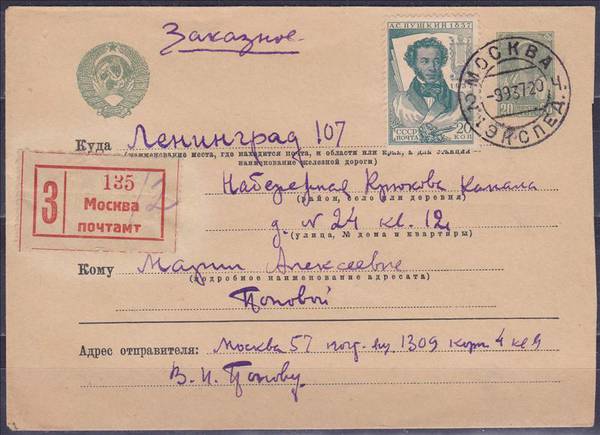 Заказное.
А.С. ПУШКИН 1837
СССР ПОЧТА 20 КОП
МОСКВА
-993720
ЭКСПЕД.
20
Куда Ленинград 107
(наименование места, где находится почта, и области или края, а для станции
наименование железной дороги)
Набережная Крюкова канала
(район, село или деревня)
д. № 24 кв. 12
(улица, № дома и квартиры)
З
135
Москва
почтамт
Кому Марии Алексеевне
(подробное наименование адресата)
Поповой
Адрес отправителя: Москва 57 1309 корп. 4 кв 9
В. И. Попову.